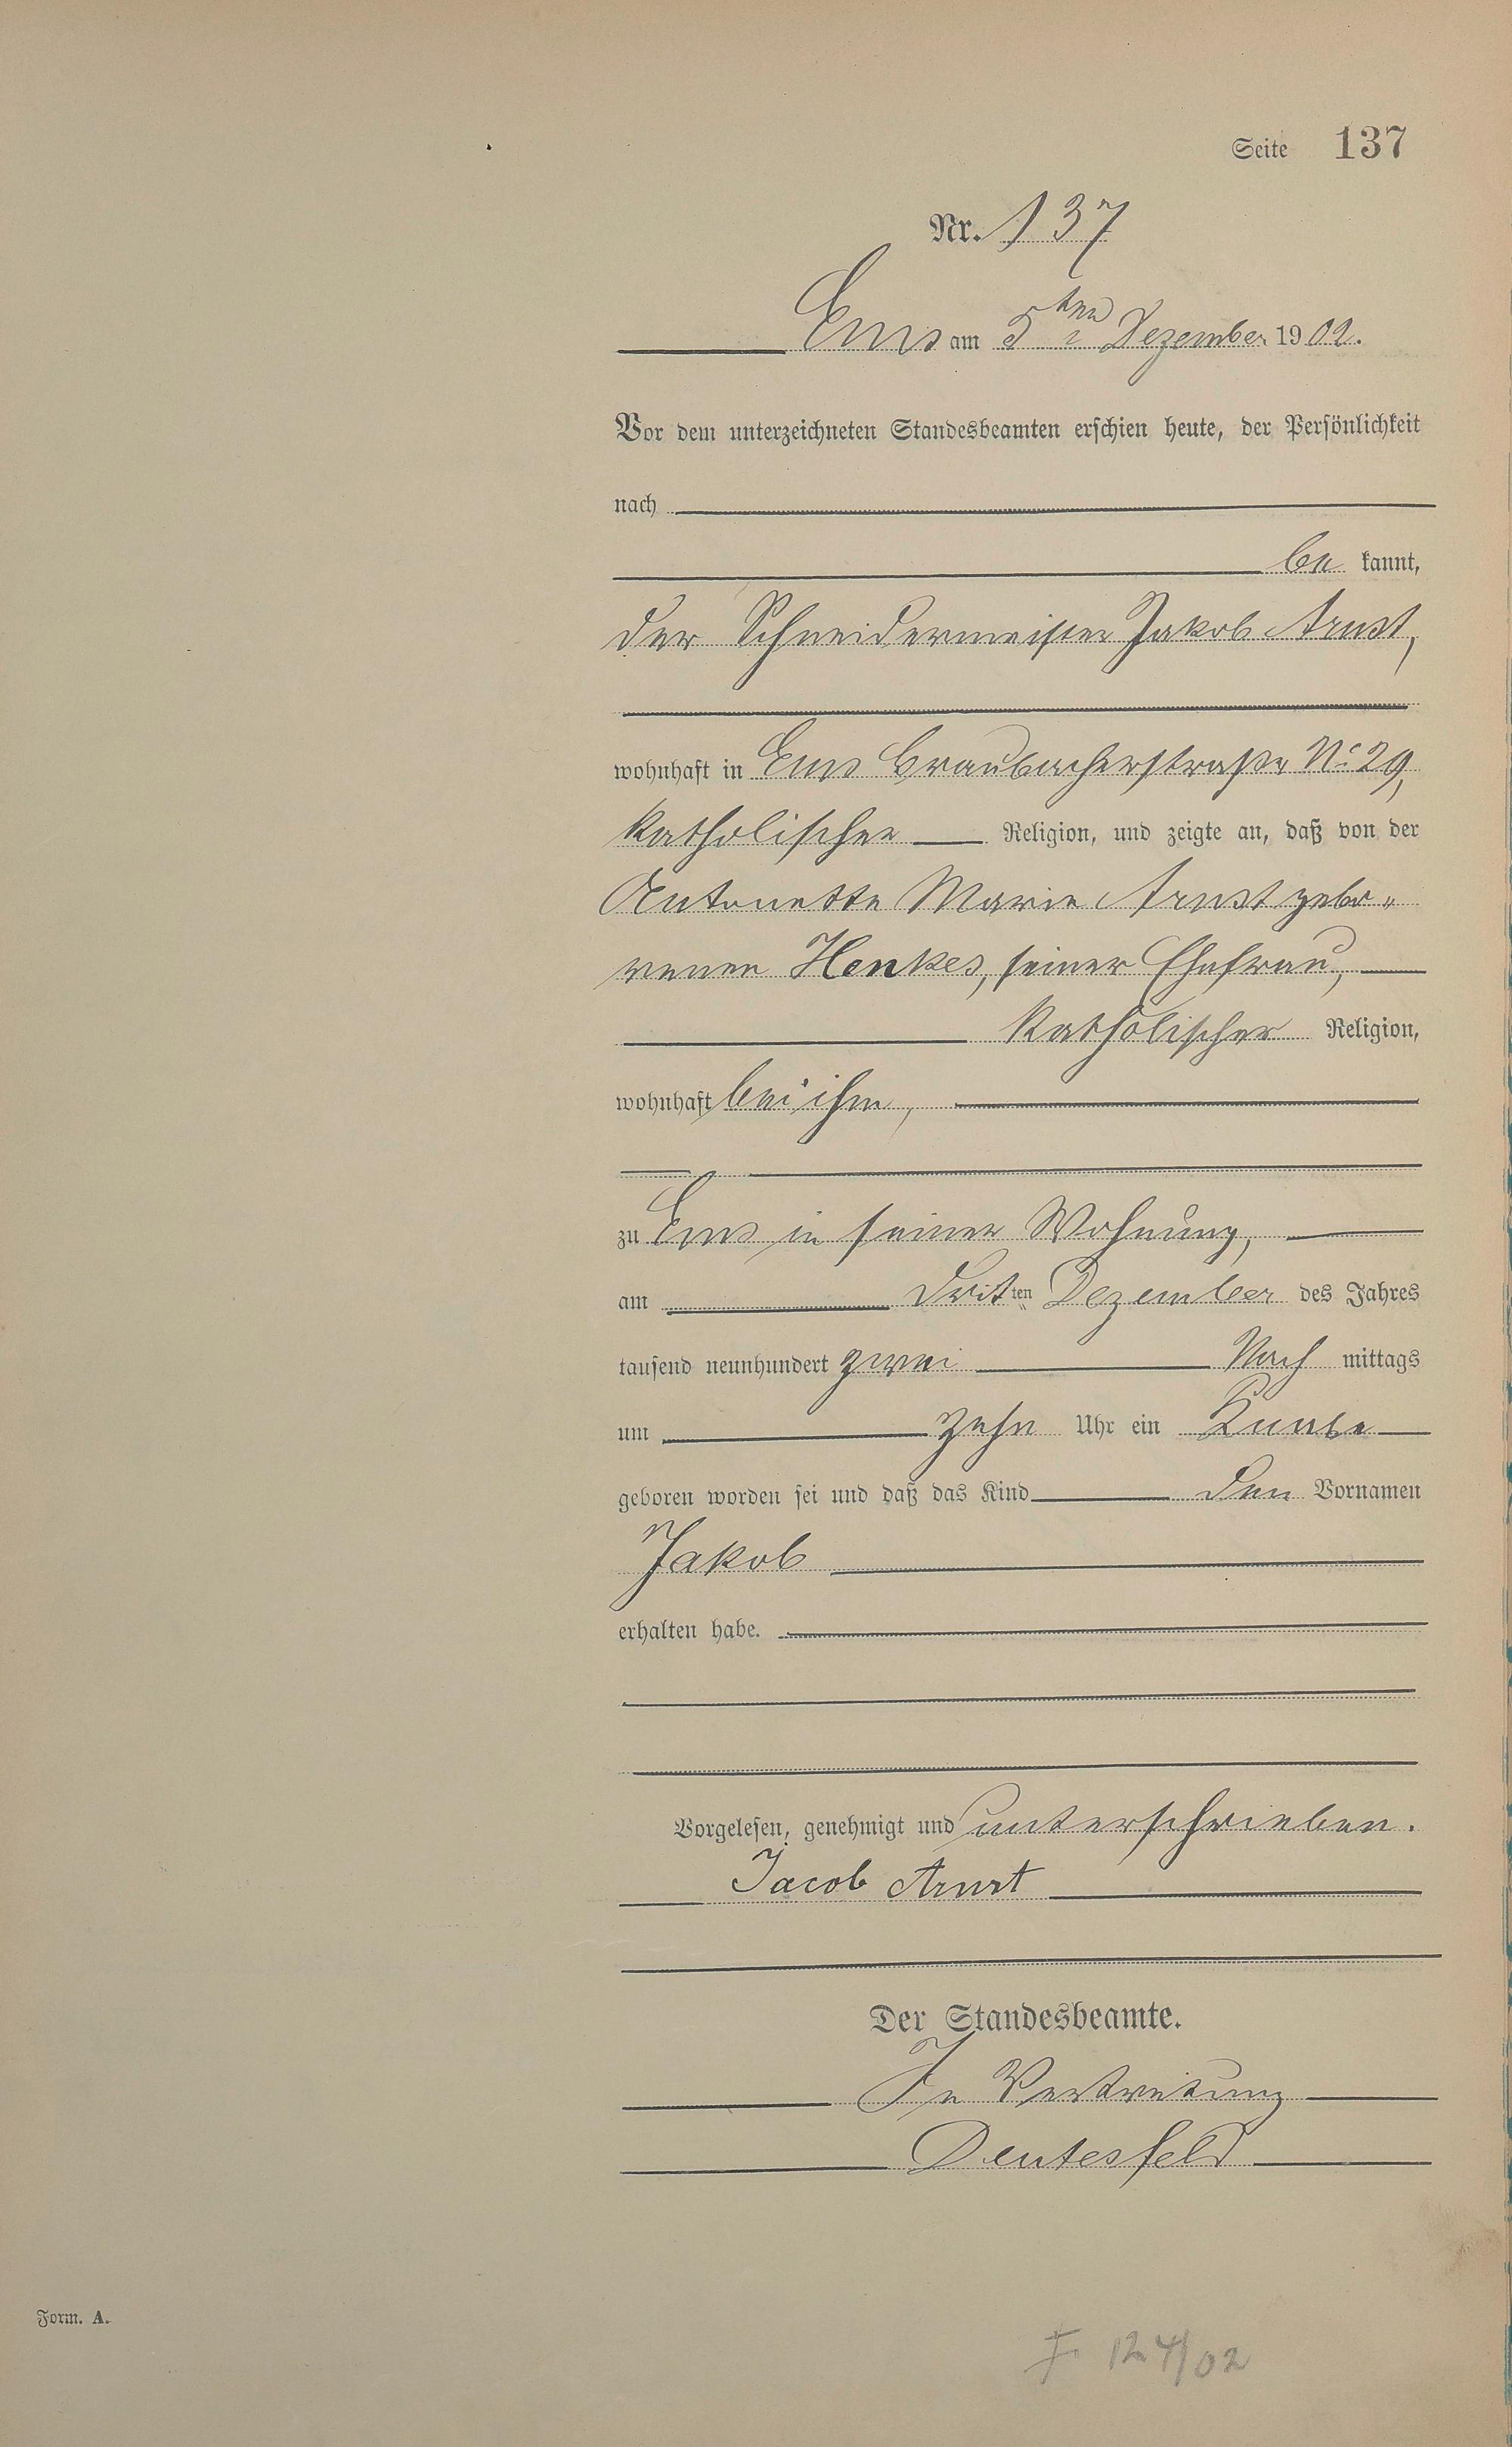 Seite 137
Nr. 137
Ems am 5ten Dezember 1902.
Vor dem unterzeichneten Standesbeamten erschien heute, der Persönlichkeit
nach
be kannt,
der Schneidermeister Jakob Arnst,
wohnhaft in Ems Braubacherstraße No 29,
katholischer Religion, und zeigte an, daß von der
Antonette Marie Arnst gebo„
renen Henkes, seiner Ehefrau,
katholischer Religion,
wohnhaft bei ihm,
zu Ems in seiner Wohnung,
am dritten Dezember des Jahres
tausend neunhundert zwei Nach mittags
um zehn Uhr ein Knabe
geboren worden sei und daß das Kind den Vornamen
Jakob
erhalten habe.
Vorgelesen, genehmigt und unterschrieben.
Jacob Arnst
Der Standesbeamte.
In Vertretung
Deutesfeld
Form. A.
F. 124/02